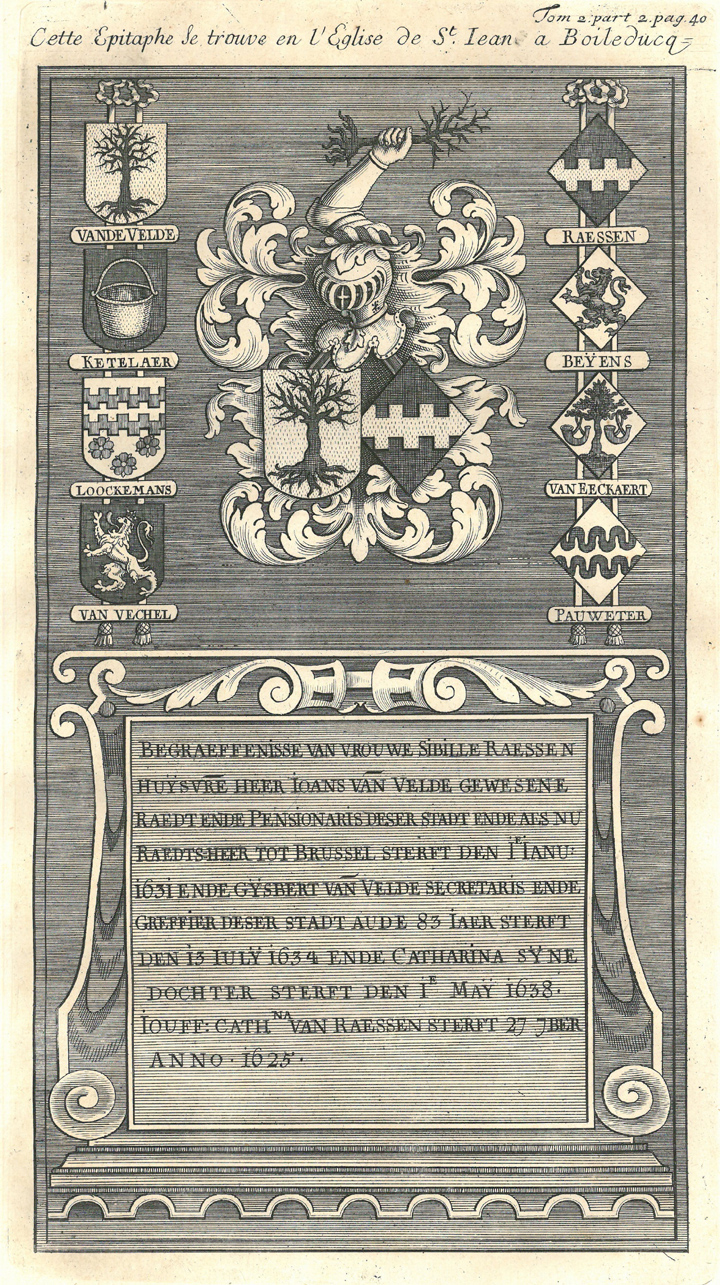 Tom 2. part 2. pag. 40
Cette Epitaphe se trouve en l'Eglise de St. Iean a Boileducq=
VANDE VELDE
KETELAER
LOOCKEMANS
VAN VECHEL
RAESSEN
BEŸENS
VAN EECKAERT
PAUWETER
BEGRAEFFENISSE VAN VROUWE SIBILLE RAESSEN
HUŸSVRE HEER IOANS VAN VELDE GEWESENE
RAEDT ENDE PENSIONARIS DESER STADT ENDE ALS NU
RAEDTS-HEER TOT BRUSSEL STERFT DEN 1E IANU:
1631 ENDE GŸSBERT VAN VELDE SECRETARIS ENDE
GREFFIER DESER STADT AUDE 83 IAER STERFT
DEN 13 IULŸ 1634 ENDE CATHARINA SŸNE
DOCHTER STERFT DEN 1E MAŸ 1638.
IOUFF: CATHNA VAN RAESSEN STERFT 27 7BER
ANNO. 1625.